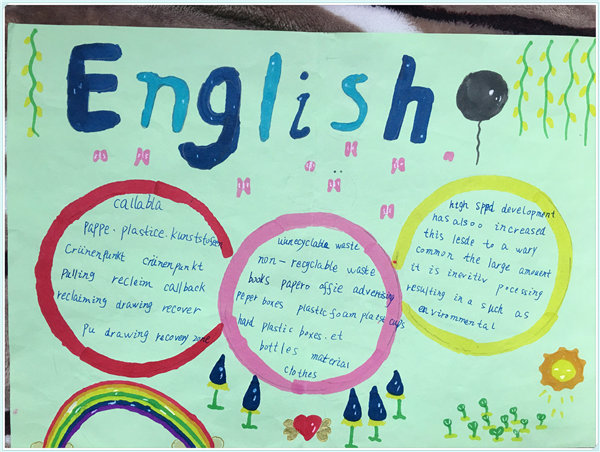 English
callabla
pappe. plastice. kunststussen
Crünenpunkt crünenpunkt
pulling recleim callback
reclaiming drawing recover
pu drawing recovery zone
uunecyclable waste
non-recyclable waste
books papero offie advertising
peper boxes plastic foam platse cups
hard plastic boxes. et
bottles material
clothes
high sppd development
has alsoo increased
this lesde to a wary
common the large amount
it is inevitiv pocessing
resulting in a such as
environmmental